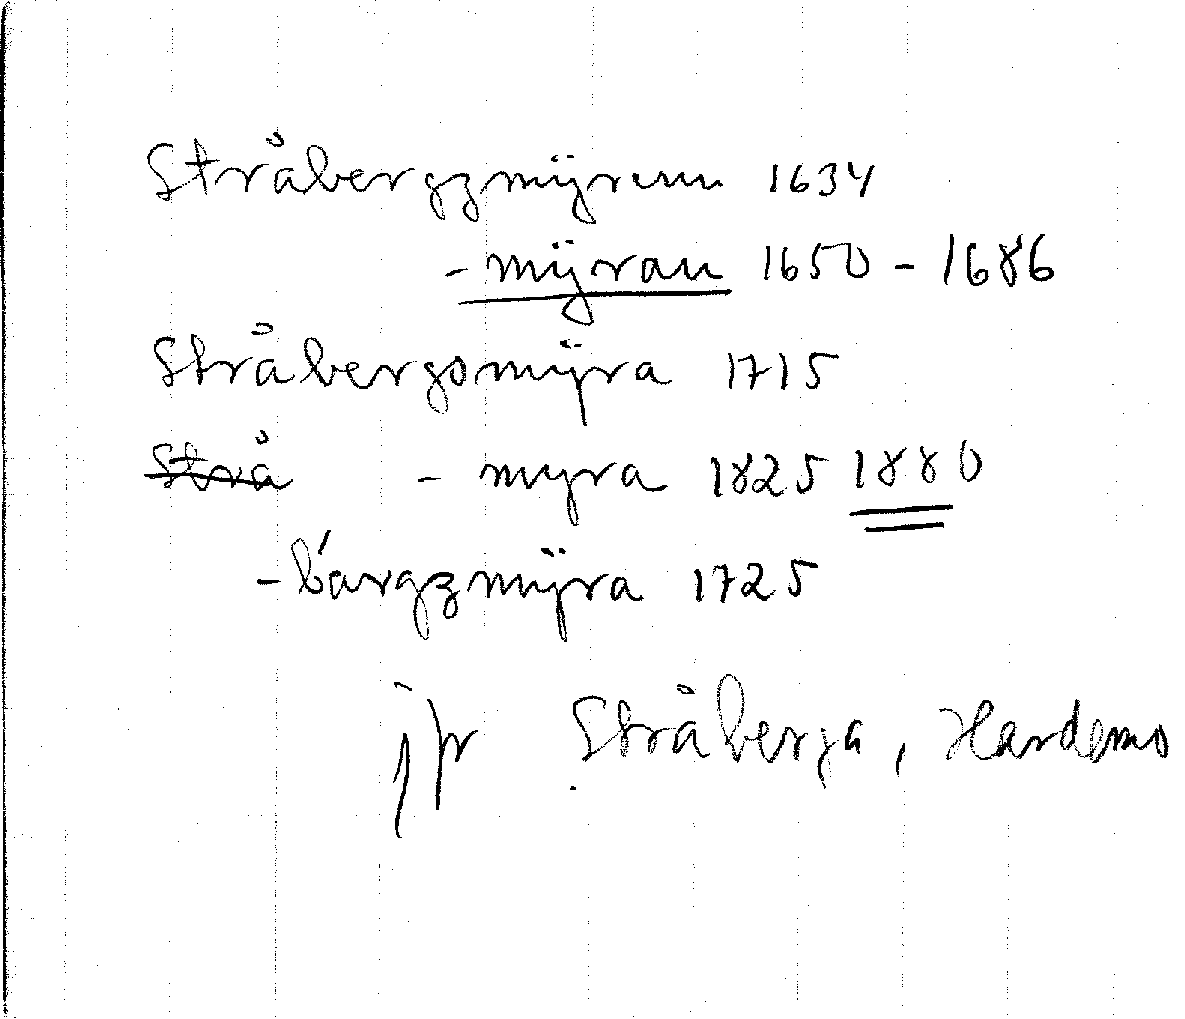 Stråbergzmÿrenn 1634
- mÿran 1650 - 1686
Stråbergsmÿra 1715
Strå - myra 1825 1880
- bärgzmÿra 1725
jfr Stråberga, Hardemo